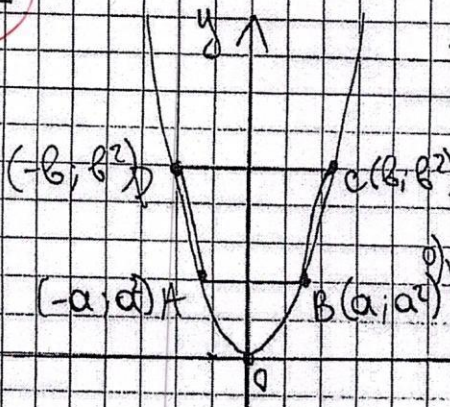 y
(-b; b²) D
C(b; b²)
(-a; a²) A
B(a; a²)
0